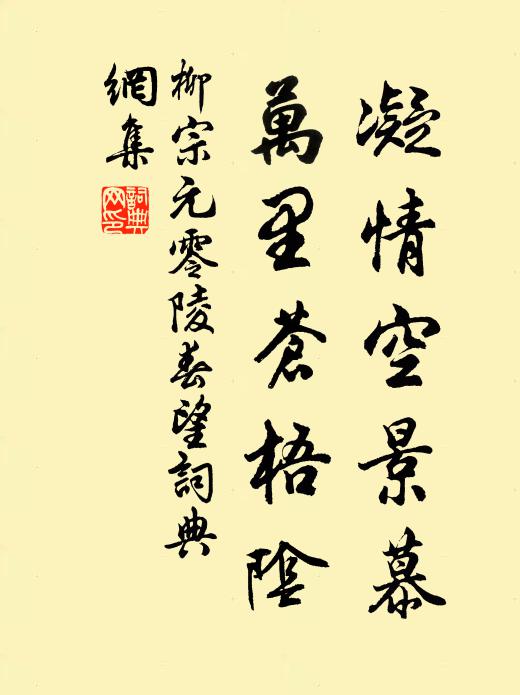 凝情空景慕
萬里蒼梧陰
柳宗元零陵春望詞典
網集
詞典網印